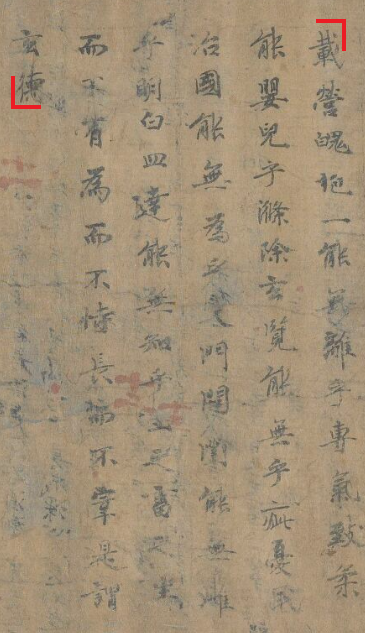 載營魄抱一能無離乎專氣致柔
能嬰兒乎滌除玄覽能無乎疵憂民
治國能無為乎天門開闔能無雌
乎明白四達能無知乎生之畜之生
而不有為而不恃長而不宰是謂
玄德